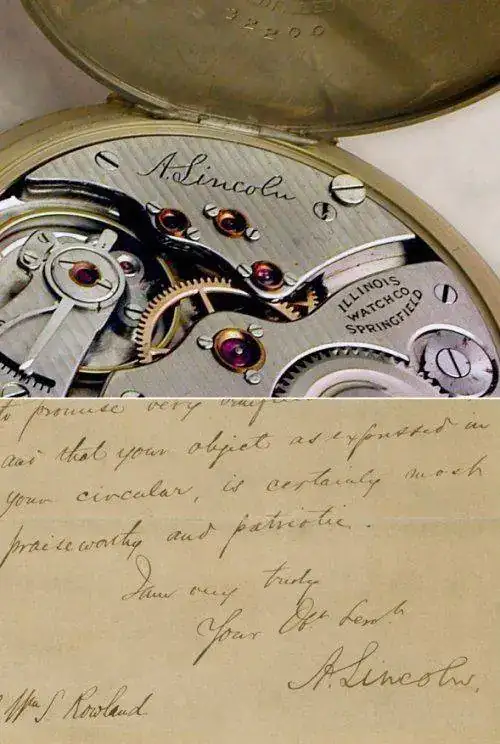 32200
A. Lincoln
ILLINOIS
WATCH CO.
SPRINGFIELD
to promise very
and that your object as expressed in
your circular, is certainly most
praiseworthy and patriotic.
I am very truly
Your Obt Servt
A. Lincoln.
Wm S. Rowland